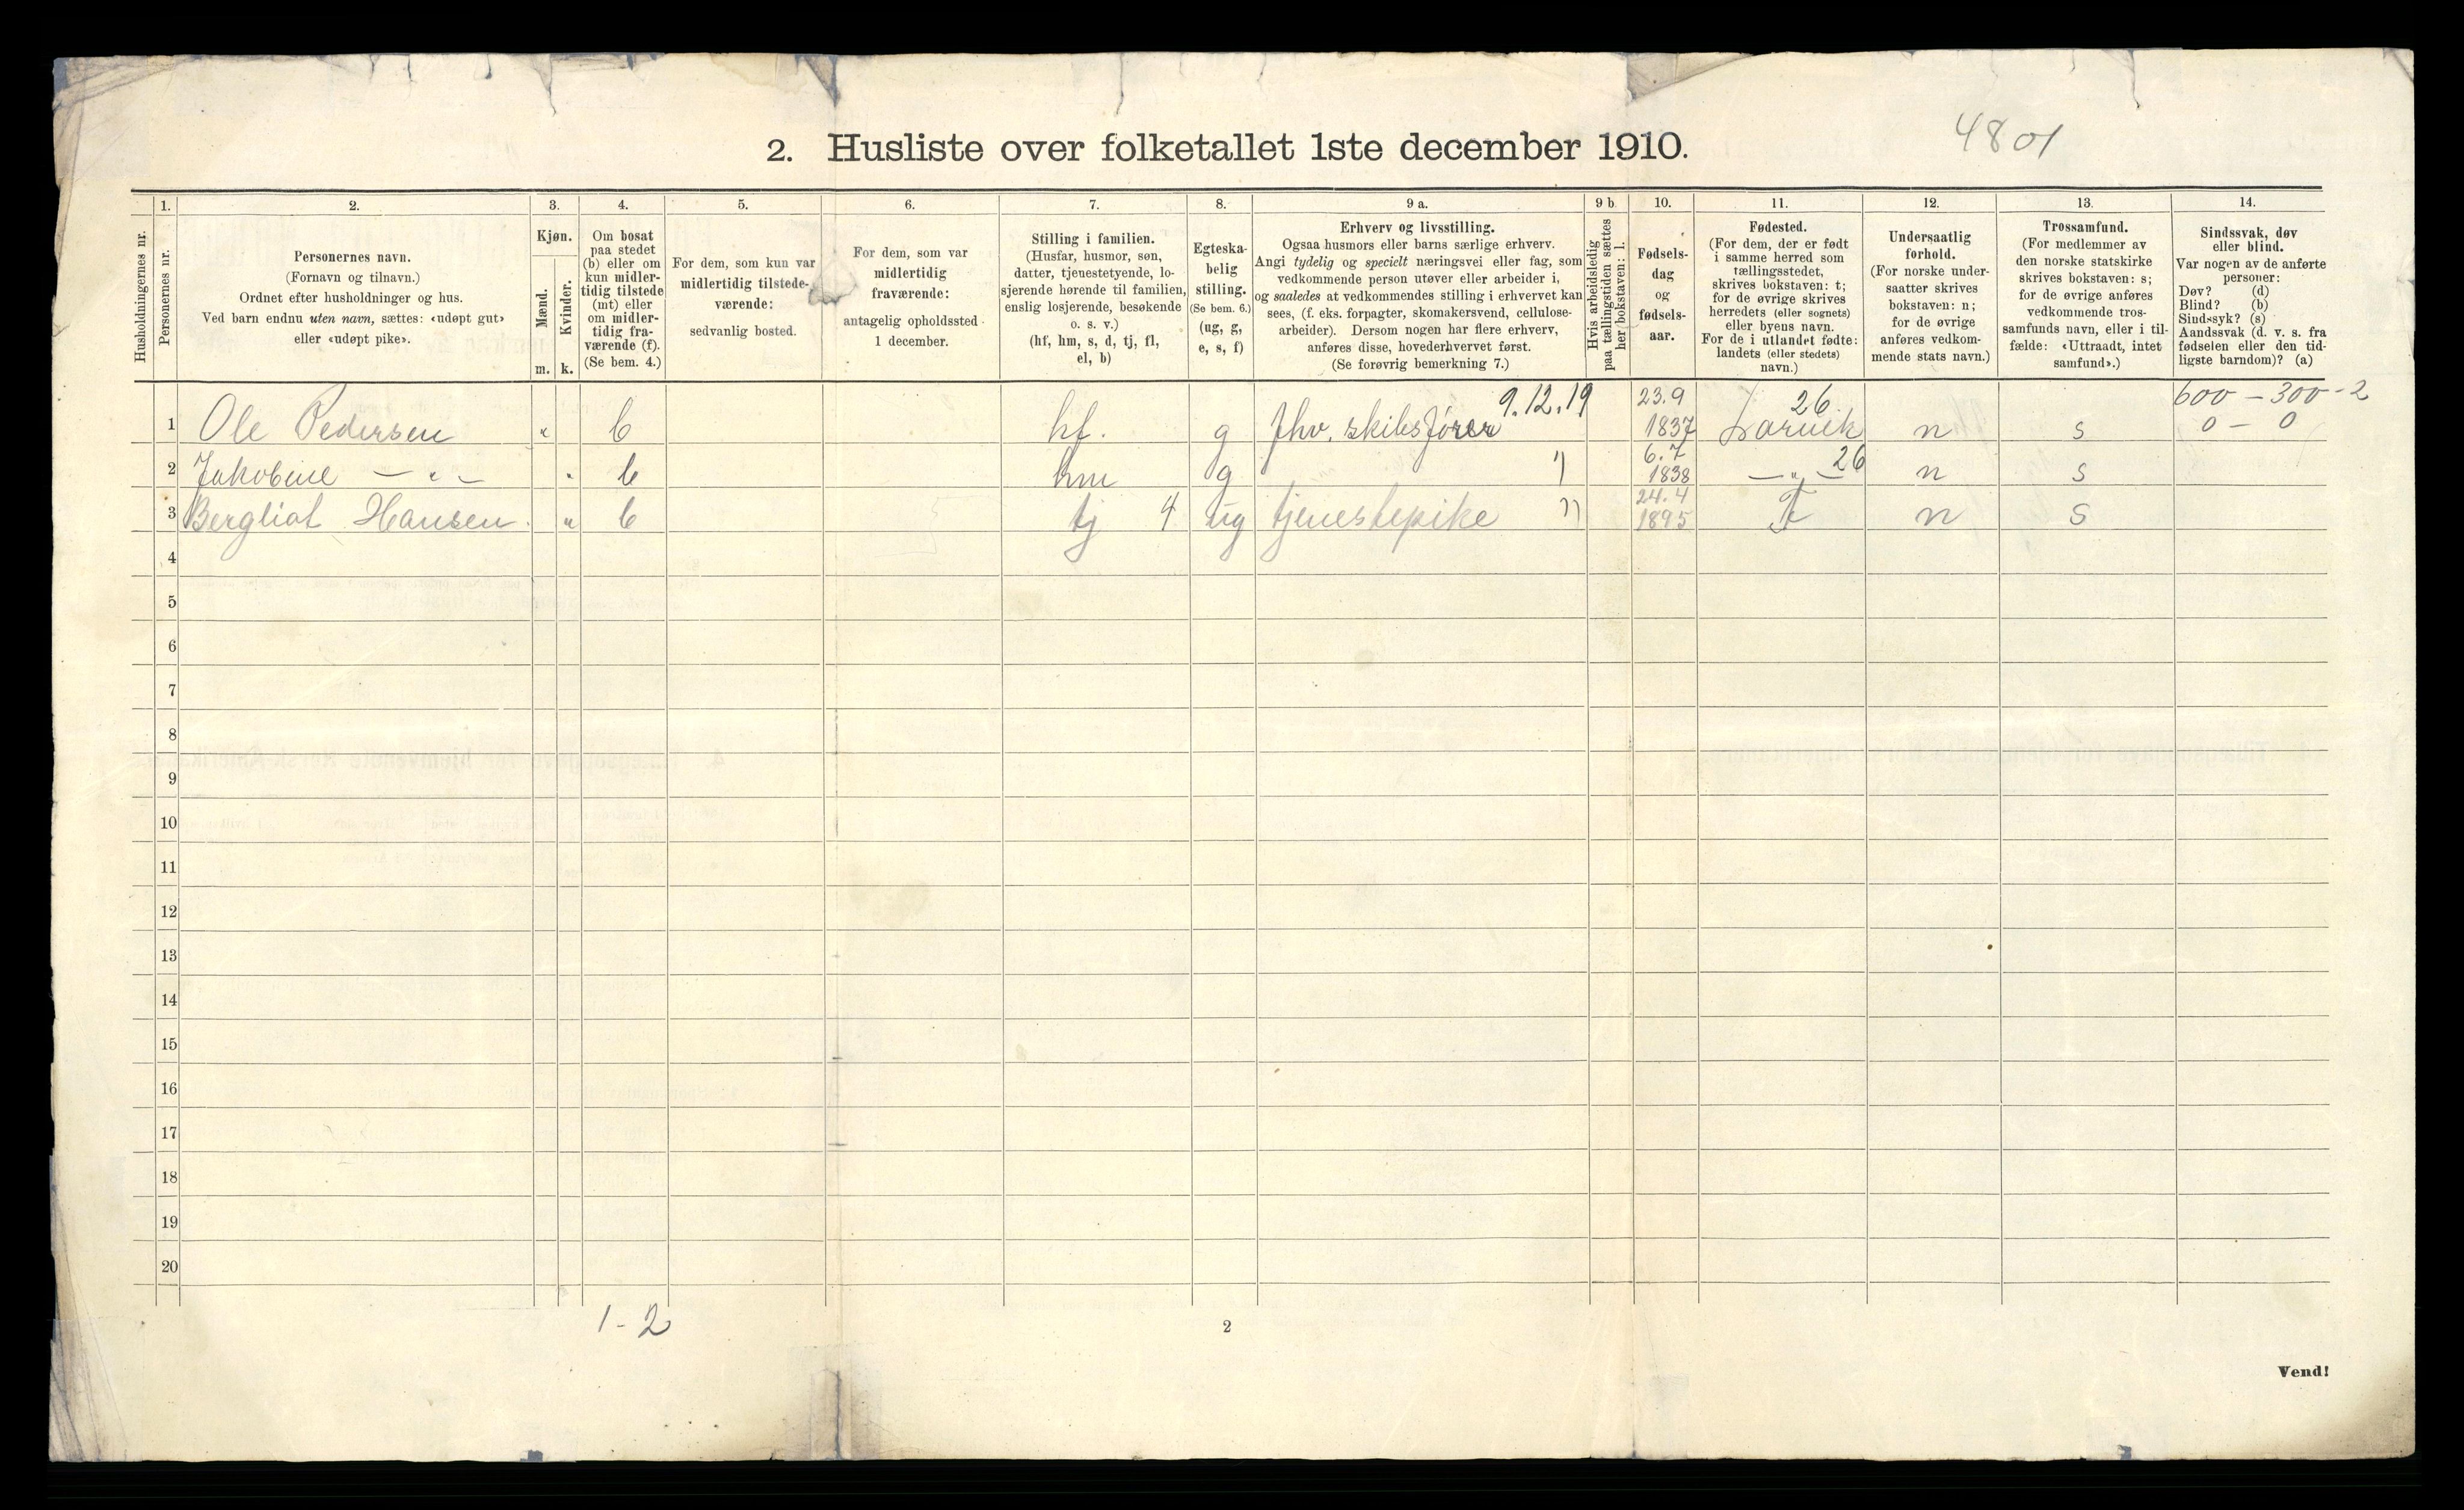 4801
2. Husliste over folketallet 1ste december 1910.
Husholdningernes nr.
1.
Personernes nr.
2.
Personernes navn.
(Fornavn og tilnavn.)
Ordnet efter husholdninger og hus.
Ved barn endnu uten navn, sættes: «udøpt gut»
eller «udøpt pike».
3.
Kjøn.
Mænd.
Kvinder.
m. k.
4.
Om bosat
paa stedet
(b) eller om
kun midler-
tidig tilstede
(mt) eller
om midler-
tidig fra-
værende (f).
(Se bem. 4.)
5.
For dem, som kun var
midlertidig tilstede-
værende:
sedvanlig bosted.
6.
For dem, som var
midlertidig
fraværende:
antagelig opholdssted
1 december.
7.
Stilling i familien.
(Husfar, husmor, søn,
datter, tjenestetyende, lo-
sjerende hørende til familien,
enslig losjerende, besøkende
o. s. v.)
(hf, hm, s, d, tj, fl,
el, b)
8.
Egteska-
belig
stilling.
(Se bem. 6.)
(ug, g,
e, s, f)
9 a.
Erhverv og livsstilling.
Ogsaa husmors eller barns særlige erhverv.
Angi tydelig og specielt næringsvei eller fag, som
vedkommende person utøver eller arbeider i,
og saaledes at vedkommendes stilling i erhvervet kan
sees, (f. eks. forpagter, skomakersvend, cellulose-
arbeider). Dersom nogen har flere erhverv,
anføres disse, hovederhvervet først.
(Se forøvrig bemerkning 7.)
9 b.
Hvis arbeidsledig
paa tællingstiden sættes
her bokstaven: l.
10.
Fødsels-
dag
og
fødsels-
aar.
11.
Fødested.
(For dem, der er født
i samme herred som
tællingsstedet,
skrives bokstaven: t;
for de øvrige skrives
herredets (eller sognets)
eller byens navn.
For de i utlandet fødte:
landets (eller stedets)
navn.)
12.
Undersaatlig
forhold.
(For norske under-
saatter skrives
bokstaven: n;
for de øvrige
anføres vedkom-
mende stats navn.)
13.
Trossamfund.
(For medlemmer av
den norske statskirke
skrives bokstaven: s;
for de øvrige anføres
vedkommende tros-
samfunds navn, eller i til-
fælde: «Uttraadt, intet
samfund».)
14.
Sindssvak, døv
eller blind.
Var nogen av de anførte
personer:
Døv? (d)
Blind? (b)
Sindssyk? (s)
Aandssvak (d. v. s. fra
fødselen eller den tid-
ligste barndom)? (a)
9.12.19 23.9 26 600 – 300 – 2
1 Ole Pedersen " b hf. g fhv. skibsfører 1837 Larvik n s 0 – 0
6.7 26
2 Jakobine — " — " b hm g " 1838 — " — n s
24.4
3 Bergliot Hansen. " b tj 4 ug tjenestepike " 1895 T n s
4
5
6
7
8
9
10
11
12
13
14
15
16
17
18
19
20
1 - 2
2
Vend!